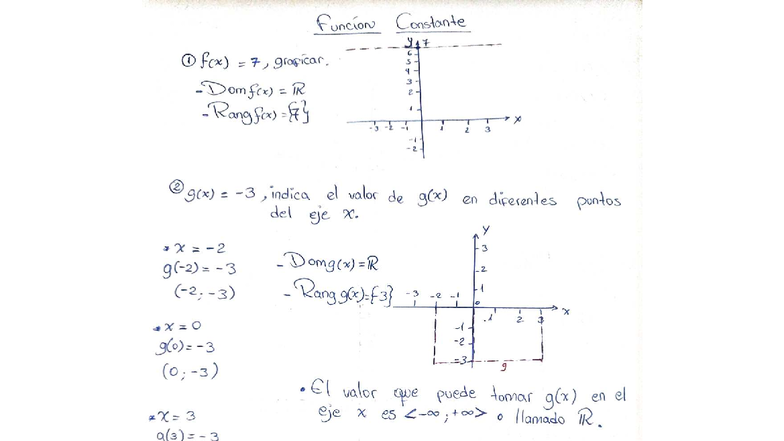 Función Constante
① f(x) = 7, graficar.
- Dom f(x) = ℝ
- Rang f(x) = {7}
y 7
6
5
4
3
2
1
-3 -2 -1 1 2 3 x
-1
-2
② g(x) = -3, indica el valor de g(x) en diferentes puntos
del eje x.
* x = -2
g(-2) = -3
(-2; -3)
- Dom g(x) = ℝ
- Rang g(x) = {-3}
y
3
2
1
-3 -2 -1 0 1 2 3 x
-1
-2
-3
g
* x = 0
g(0) = -3
(0; -3)
• El valor que puede tomar g(x) en el
eje x es <-∞; +∞> o llamado ℝ.
* x = 3
g(3) = -3